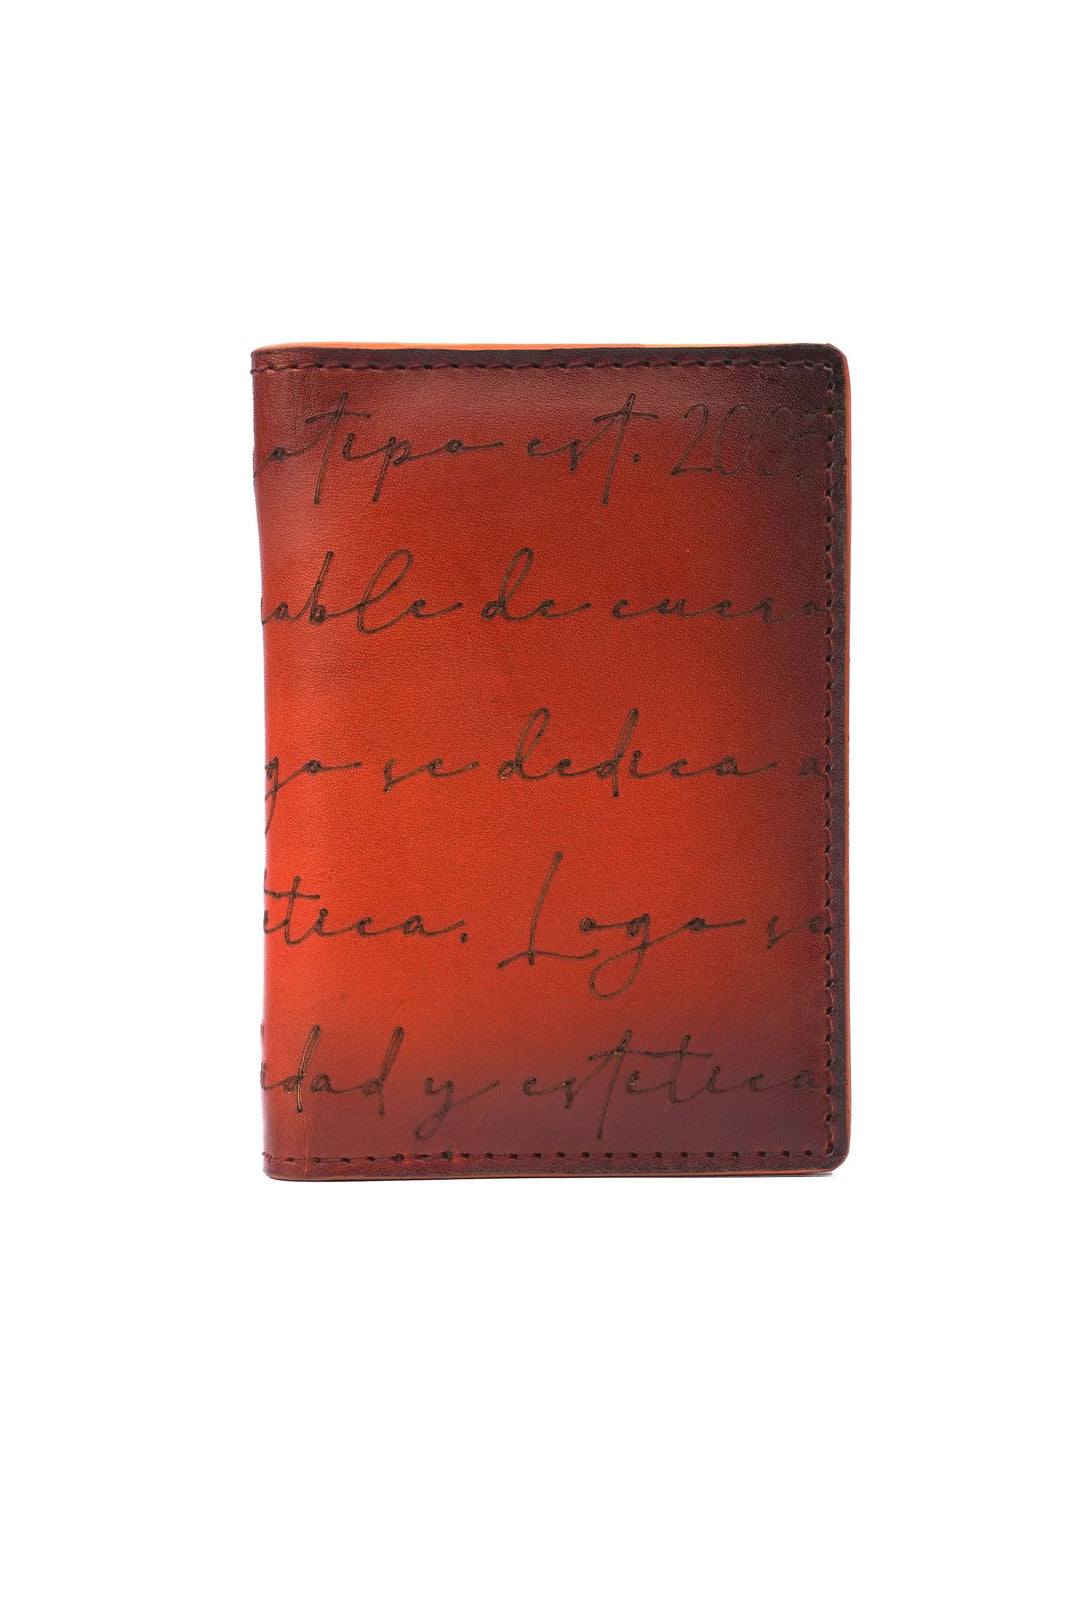 otipo est. 2005
cable de cuero
go se dedica a
etica. Logo se
idad y estetica